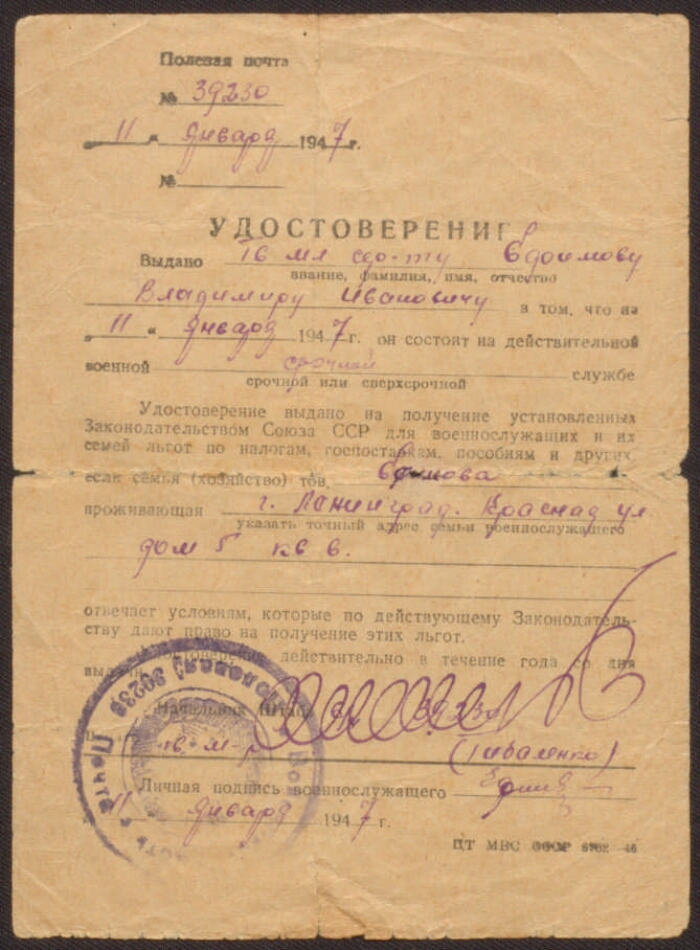 Полевая почта
№ 39230
„ 11 “ января 1947 г.
№
УДОСТОВЕРЕНИЕ
Выдано гв мл с-ту Ефимову
звание, фамилия, имя, отчество
Владимиру Ивановичу в том, что на
„ 11 “ января 1947 г. он состоит на действительной
военной срочной службе
срочной или сверхсрочной
Удостоверение выдано на получение установленных
Законодательством Союза ССР для военнослужащих и их
семей льгот по налогам, госпоставкам, пособиям и других,
если семья (хозяйство) тов. Ефимова
проживающая г. Ленинград. Красная ул.
указать точный адрес семьи военнослужащего
дом 5 кв 6.
отвечает условиям, которые по действующему Законодатель-
ству дают право на получение этих льгот.
действительно в течение года со дня
выдачи
Начальник Штаба 39230
гв. м-р
Личная подпись военнослужащего
11 января 1947 г.
ЦТ МВС СССР 46